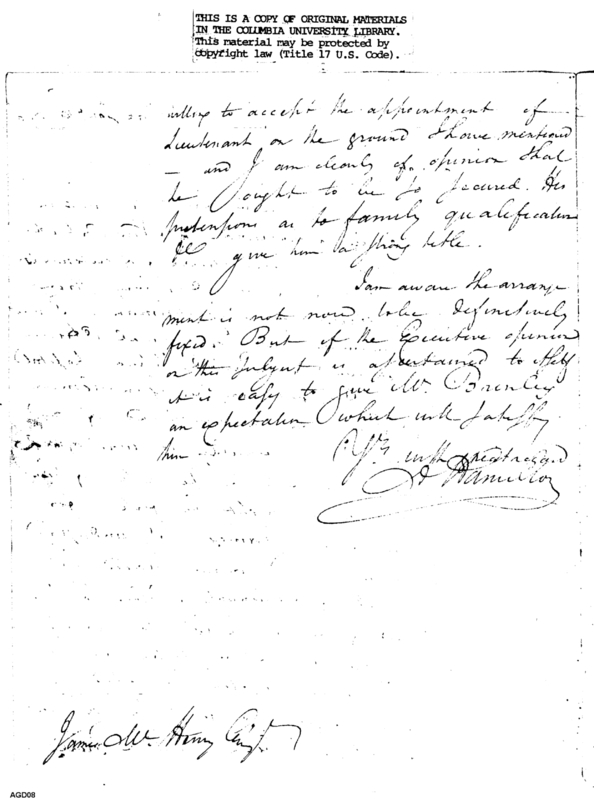 THIS IS A COPY OF ORIGINAL MATERIALS
IN THE COLUMBIA UNIVERSITY LIBRARY.
This material may be protected by
copyright law (Title 17 U.S. Code).
willing to accept the appointment of
Lieutenant on the ground I have mentioned
— and I am clearly of opinion that
he ought to be so secured. His
pretensions as to family qualification
&c give him a strong title.
I am aware the arrange
ment is not now to be definitively
fixed. But if the Executive opinion
on this subject is ascertained to itself
it is easy to give Mr. Brinley
an expectation which will satisfy
him
Yrs with great regard
A Hamilton
James Mc Henry Esqr.
AGD08